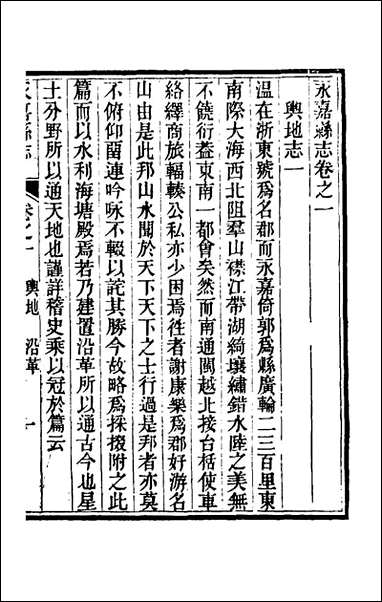 永嘉縣志卷之一
輿地志一
溫在浙東號爲名郡而永嘉倚郭爲縣廣輪二三百里東
南際大海西北阻羣山襟江帶湖綺壤繡錯水陸之美無
不饒衍葢東南一都會矣然而南通閩越北接台栝使車
絡繹商旅輻輳公私亦少困焉徃者謝康樂爲郡好游名
山由是此邦山水聞於天下天下之士行過是邦者亦莫
不俯仰留連吟咏不輟以詫其勝今故略爲採掇附之此
篇而以水利海塘殿焉若乃建置沿革所以通古今也星
土分野所以通天地也謹詳稽史乘以冠於篇云
永嘉縣志
卷之一
輿地 沿革
一